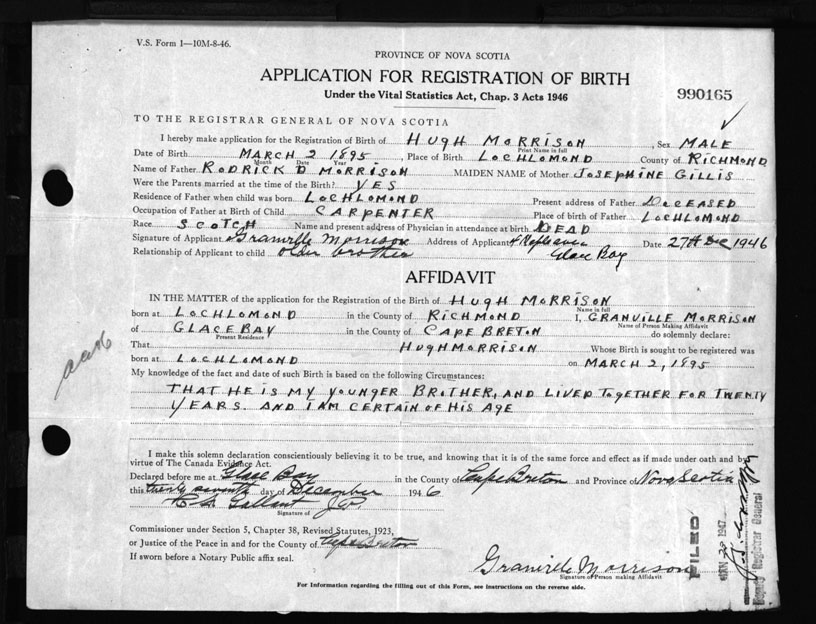 V.S. Form 1—10M-8-46.
PROVINCE OF NOVA SCOTIA
APPLICATION FOR REGISTRATION OF BIRTH
Under the Vital Statistics Act, Chap. 3 Acts 1946
990165
TO THE REGISTRAR GENERAL OF NOVA SCOTIA
I hereby make application for the Registration of Birth of HUGH MORRISON, Sex MALE
Print Name in full
Date of Birth MARCH 2 1895, Place of Birth LOCHLOMOND County of RICHMOND
Month Date Year
Name of Father RODRICK D MORRISON MAIDEN NAME of Mother JOSEPHINE GILLIS
Were the Parents married at the time of the Birth? YES
Residence of Father when child was born LOCHLOMOND Present address of Father DECEASED
Occupation of Father at Birth of Child CARPENTER Place of birth of Father LOCHLOMOND
Race SCOTCH Name and present address of Physician in attendance at birth DEAD
Signature of Applicant Granville Morrison Address of Applicant Glace Bay Date 27th Dec 1946
Relationship of Applicant to child older brother
AFFIDAVIT
IN THE MATTER of the application for the Registration of the Birth of HUGH MORRISON
Name in full
born at LOCHLOMOND in the County of RICHMOND I, GRANVILLE MORRISON
Name of Person Making Affidavit
of GLACE BAY in the County of CAPE BRETON do solemnly declare:
Present Residence
That HUGH MORRISON Whose Birth is sought to be registered was
born at LOCHLOMOND on MARCH 2, 1895
My knowledge of the fact and date of such Birth is based on the following Circumstances:
THAT HE IS MY YOUNGER BROTHER, AND LIVED TOGETHER FOR TWENTY
YEARS. AND I AM CERTAIN OF HIS AGE
I make this solemn declaration conscientiously believing it to be true, and knowing that it is of the same force and effect as if made under oath and by
virtue of The Canada Evidence Act.
Declared before me at Glace Bay in the County of Cape Breton and Province of Nova Scotia
this twenty seventh day of December 1946
Gallant J.P.
Signature of
Commissioner under Section 5, Chapter 38, Revised Statutes, 1923,
or Justice of the Peace in and for the County of Cape Breton
If sworn before a Notary Public affix seal.
Granville Morrison
Signature of Person making Affidavit
For Information regarding the filling out of this Form, see instructions on the reverse side.
FILED
JAN 20 1947
Deputy Registrar General